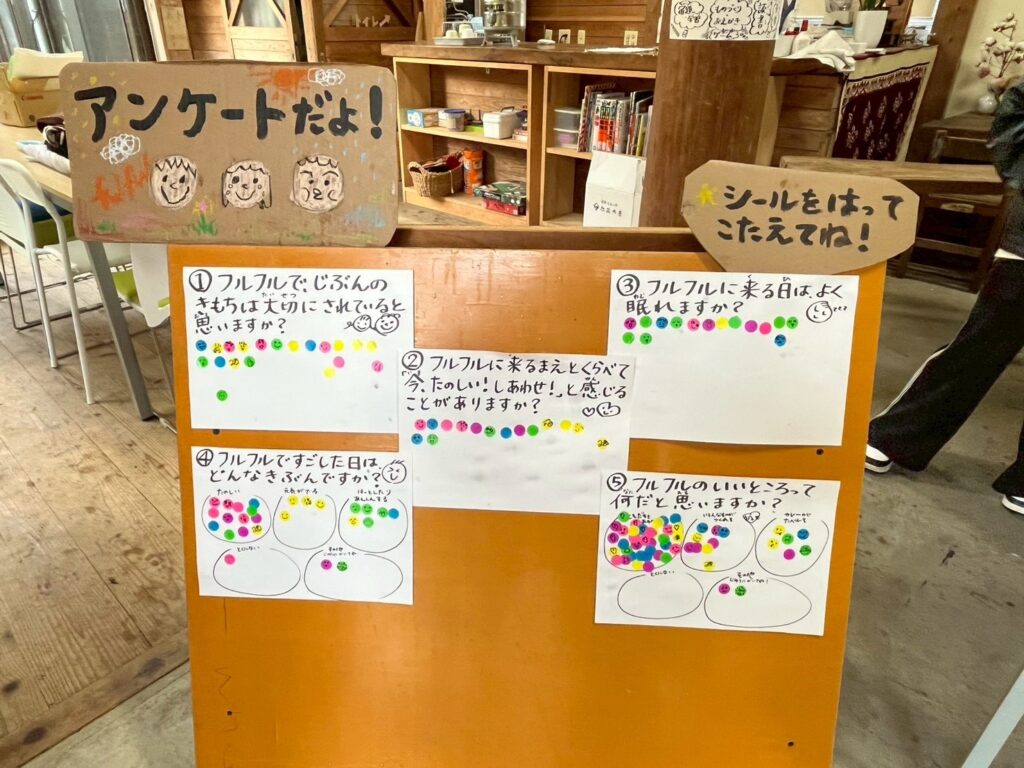 アンケートだよ!
シールをはって
こたえてね!
① フルフルで、じぶんの
きもちは大切にされていると
思いますか?
② フルフルに来るまえとくらべて
今、たのしい!しあわせ!と感じる
ことがありますか?
③ フルフルに来る日は、よく
眠れますか?
④ フルフルですごした日は、
どんなきぶんですか?
たのしい
元気がでる
ほっとしたり
あんしんする
とくにない
⑤ フルフルのいいところって
何だと思いますか?
とくにない
トイレ